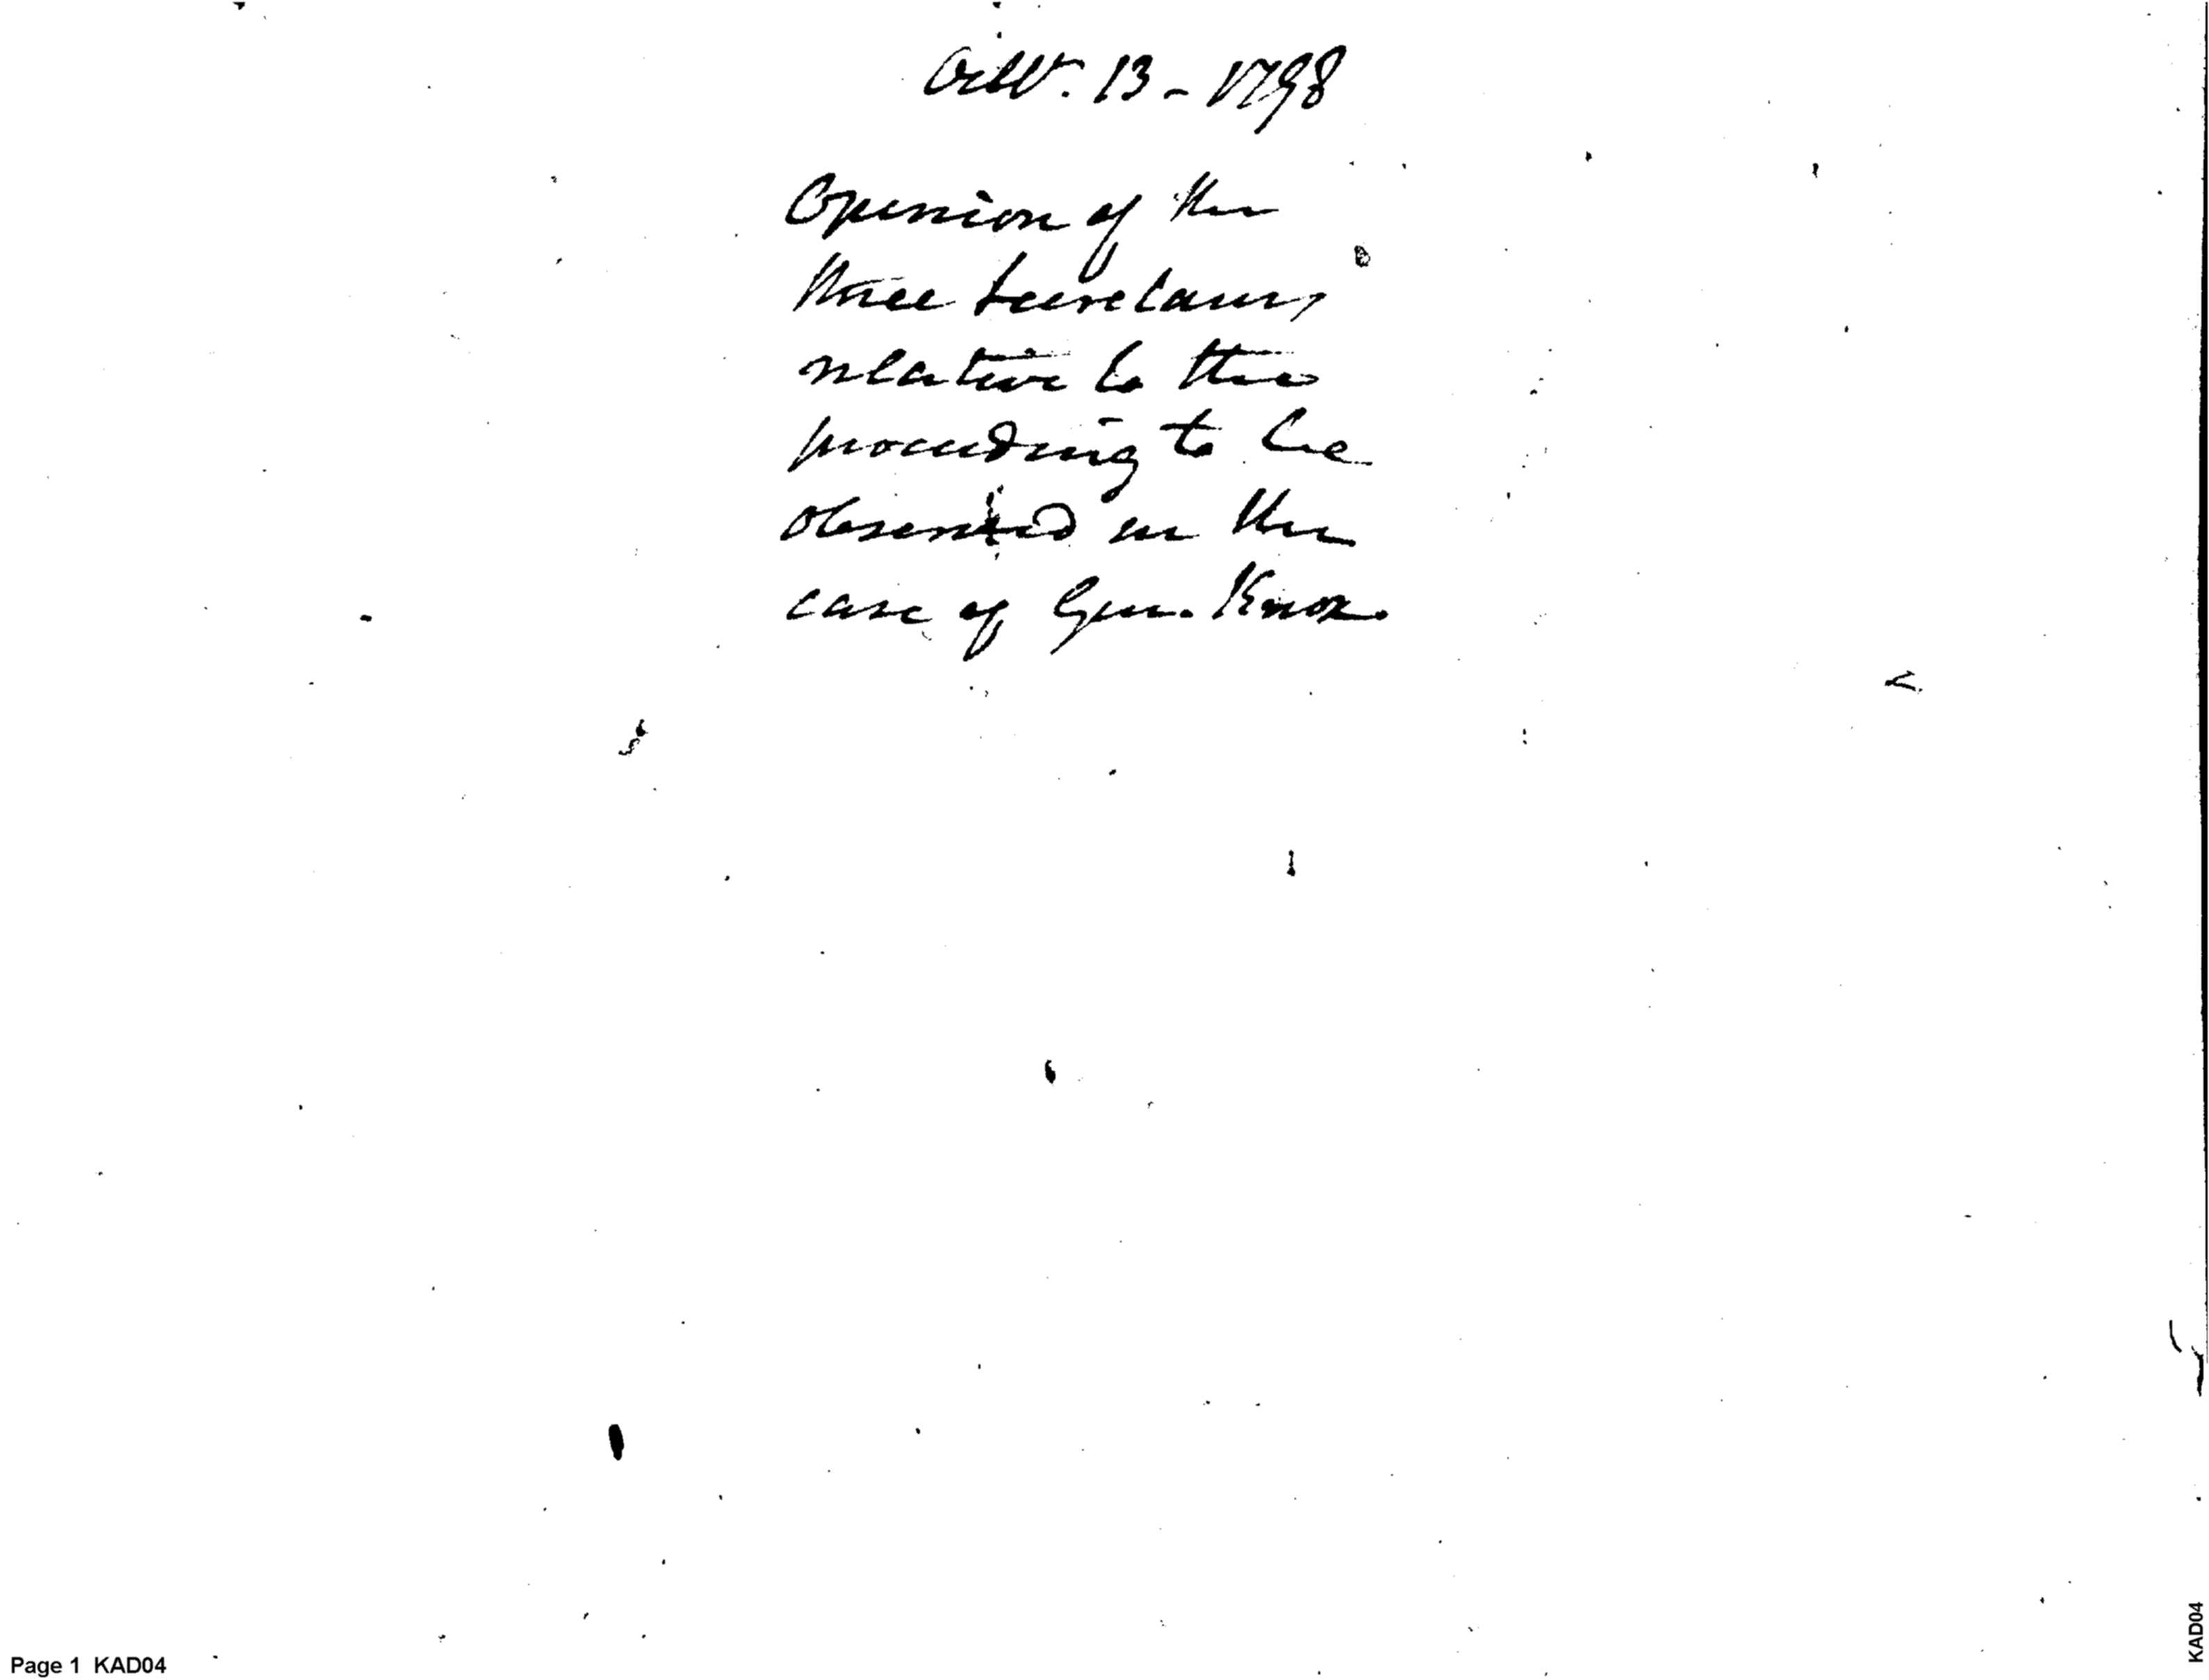 Octbr. 13 - 1798
Opinion of the
three Secretaries
relative to the
proceeding to be
observed in the
case of Gen. Knox.
Page 1 KAD04
KAD04